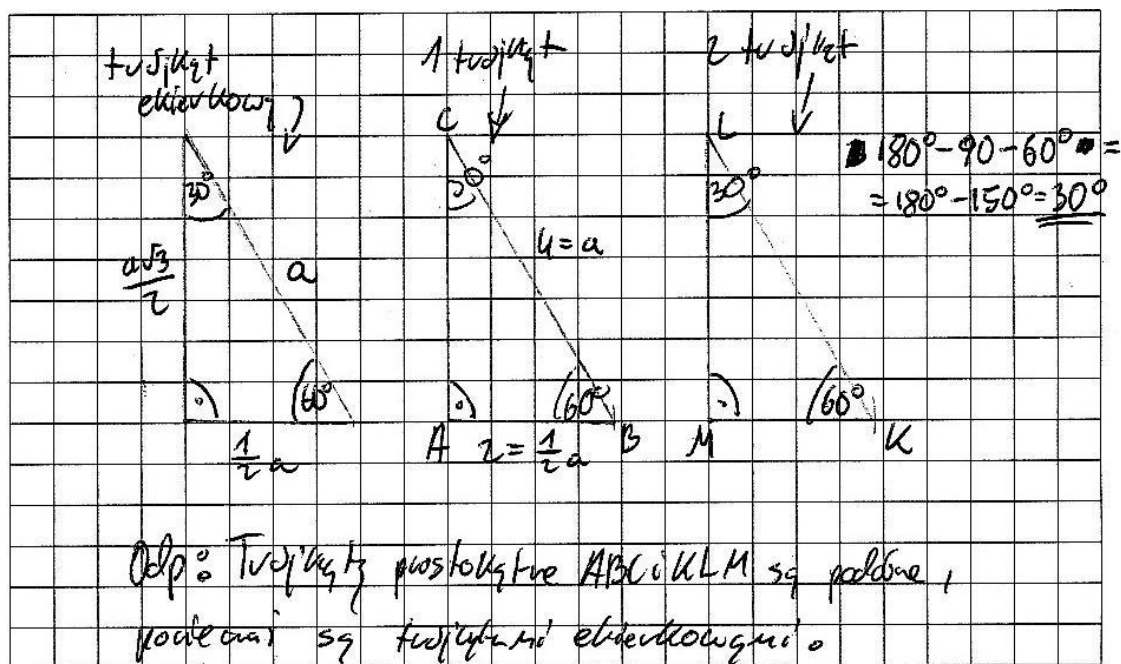 trójkąt
ekierkowy
30°
a√3/2
a
60°
1/2 a
1 trójkąt
C
4=a
60°
A 2=1/2 a B
2 trójkąt
L
30°
60°
M K
180°-90-60° =
=180°-150°=30°
Odp: Trójkąty prostokątne ABC i KLM są podobne,
ponieważ są trójkątami ekierkowymi.